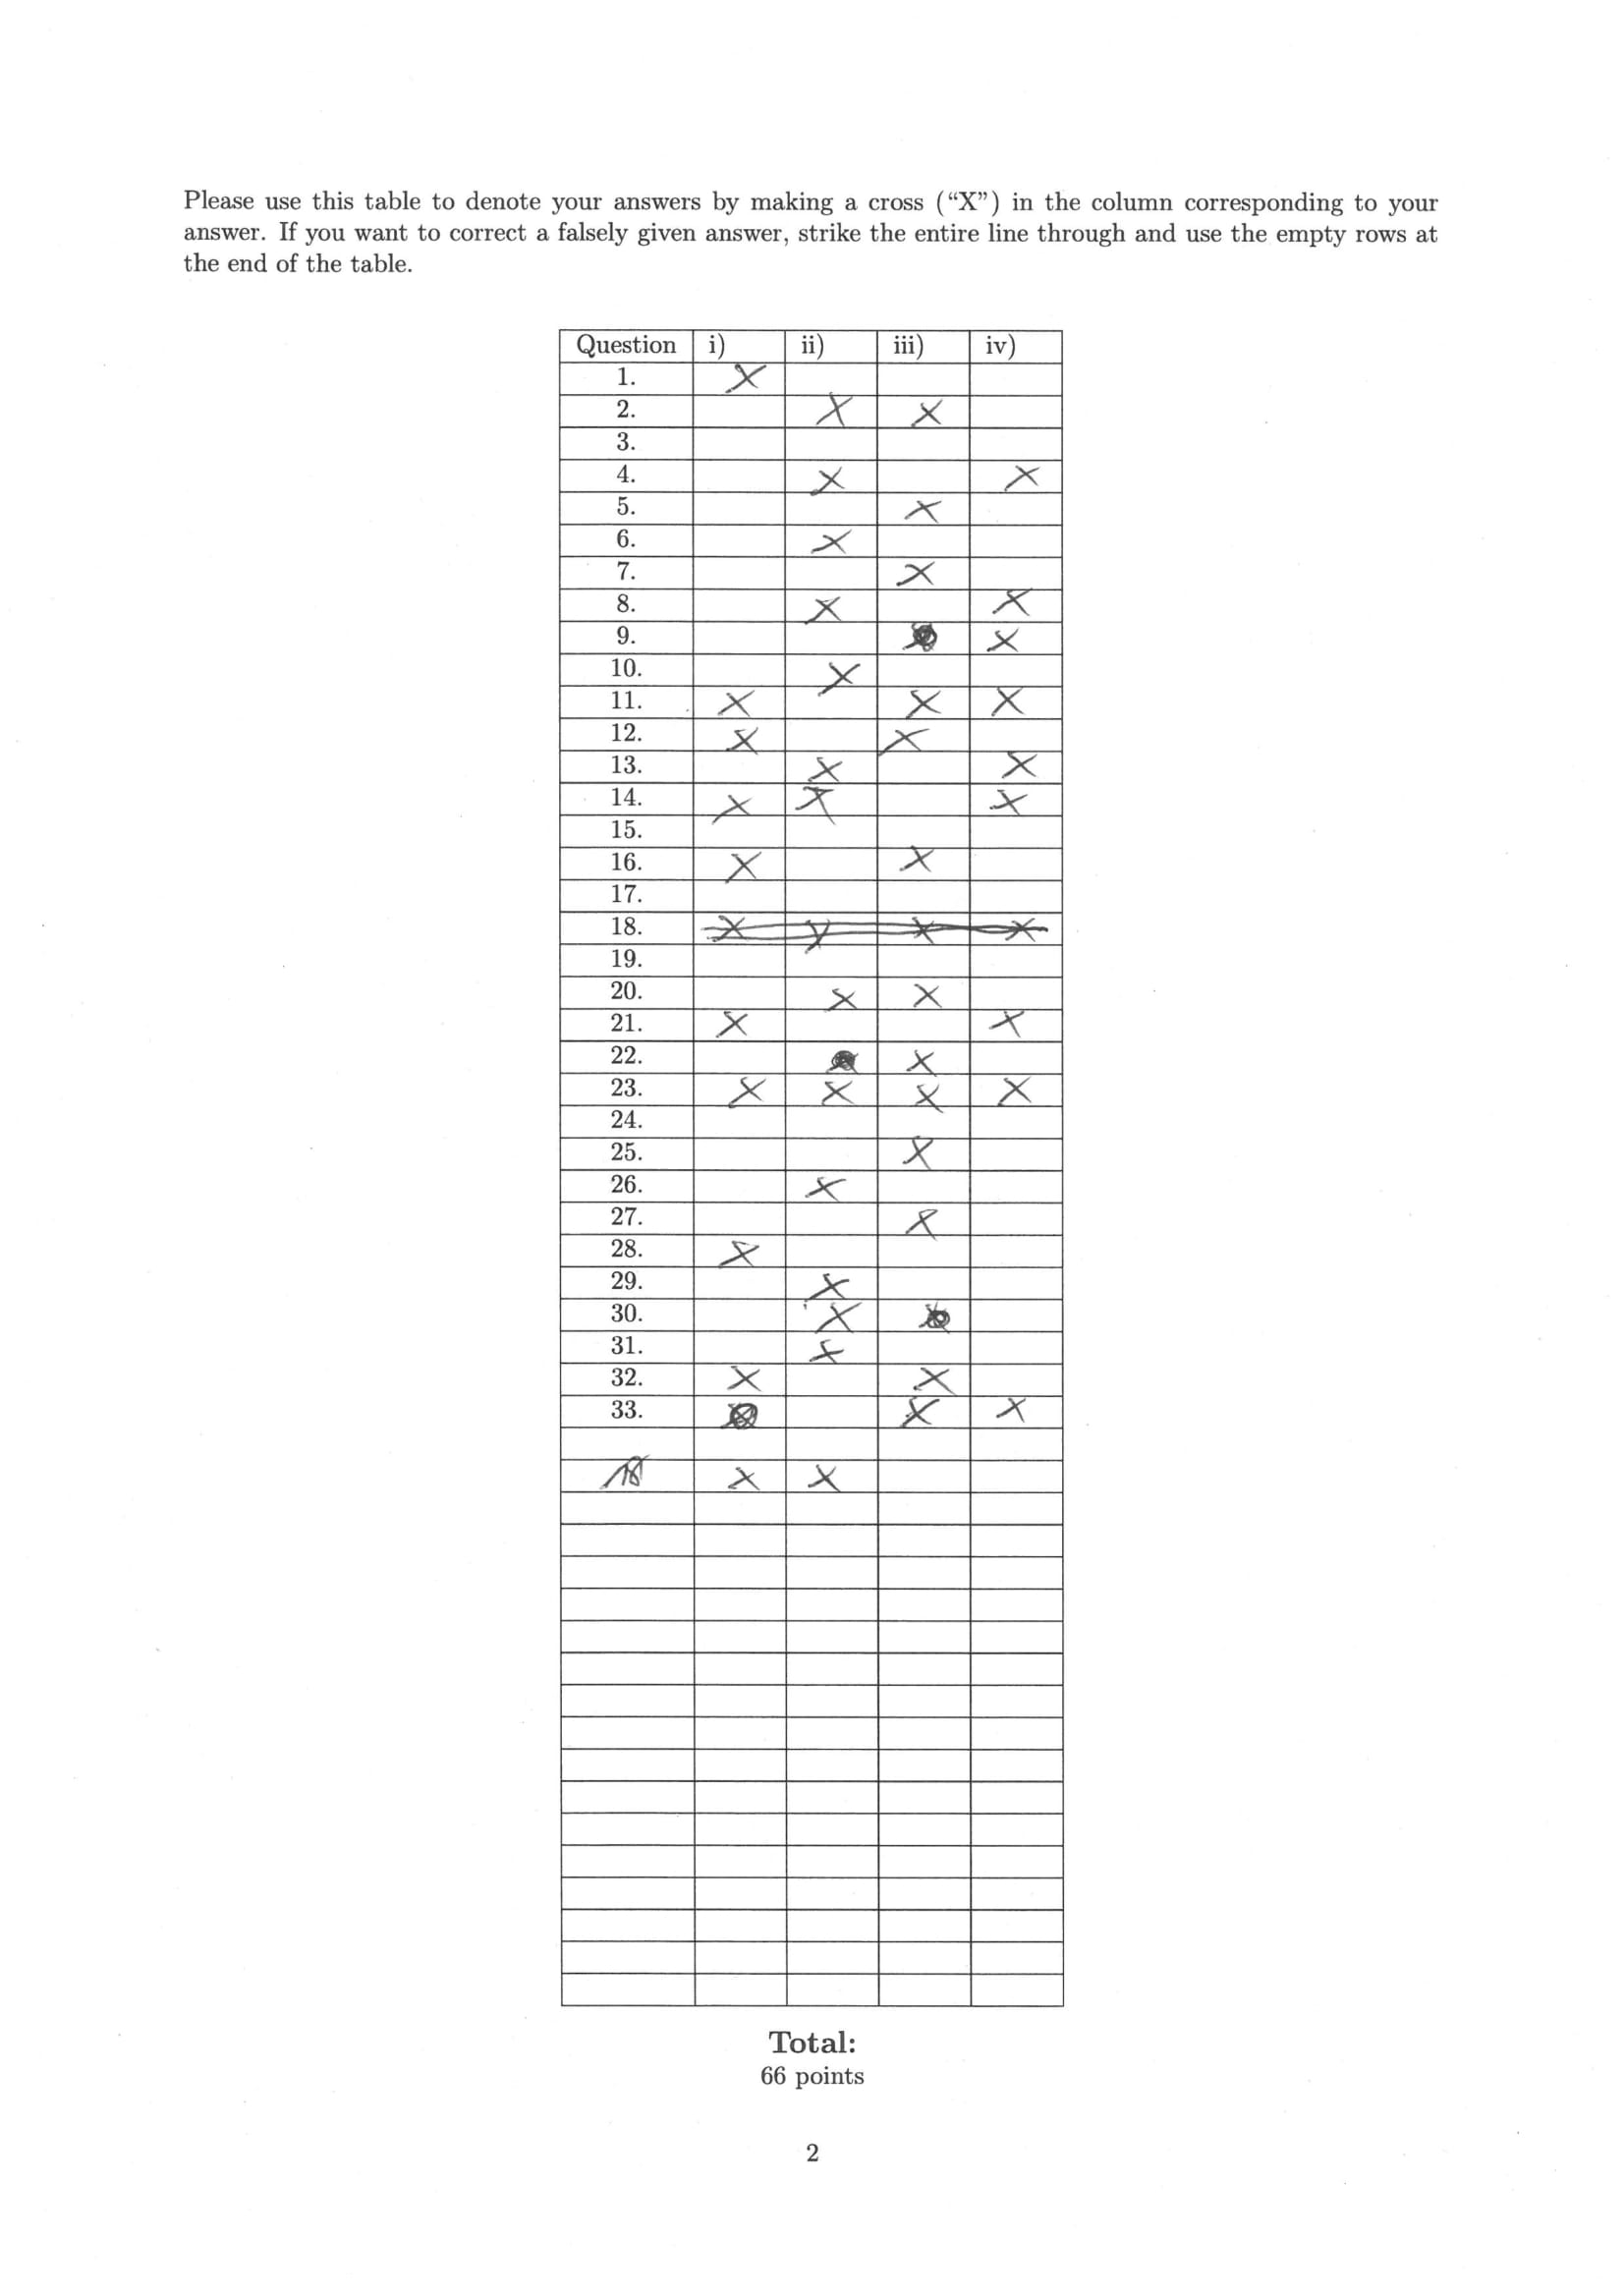 Please use this table to denote your answers by making a cross (“X”) in the column corresponding to your
answer. If you want to correct a falsely given answer, strike the entire line through and use the empty rows at
the end of the table.
Question i) ii) iii) iv)
1. X
2. X X
3.
4. X X
5. X
6. X
7. X
8. X X
9. X
10. X
11. X X X
12. X X
13. X X
14. X X X
15.
16. X X
17.
18. X X X X
19.
20. X X
21. X X
22. X
23. X X X X
24.
25. X
26. X
27. X
28. X
29. X
30. X
31. X
32. X X
33. X X
18 X X
Total:
66 points
2